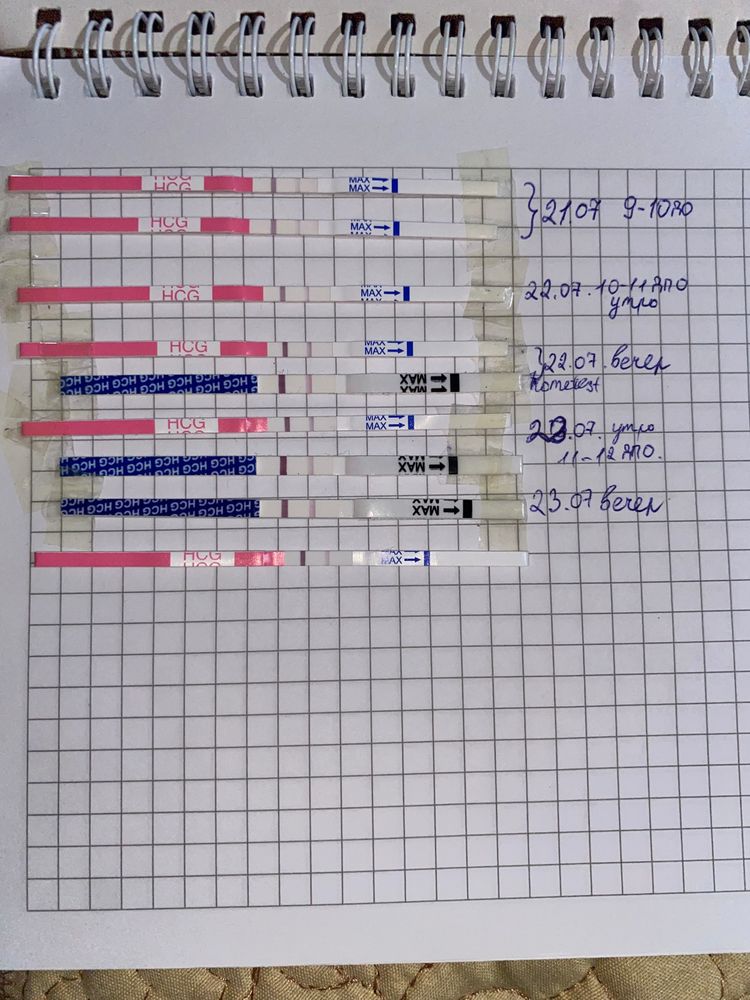 HCG
HCG
MAX
MAX
21.07 9-10 дпо
HCG
MAX
HCG
MAX
22.07. 10-11 дпо
утро
HCG
MAX
MAX
22.07. вечер
HCG HCG HCG HCG HCG HCG
MAX
Hometest
HCG
MAX
MAX
23.07. утро
11-12 дпо.
HCG HCG HCG HCG HCG HCG
MAX
HCG HCG HCG HCG HCG HCG
MAX
23.07 вечер
HCG
MAX